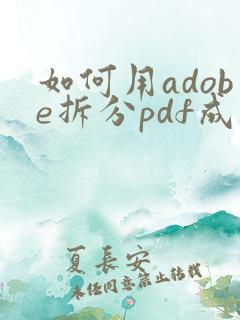 如何用adob
e拆分pdf成
夏長安
未经同意禁止转载